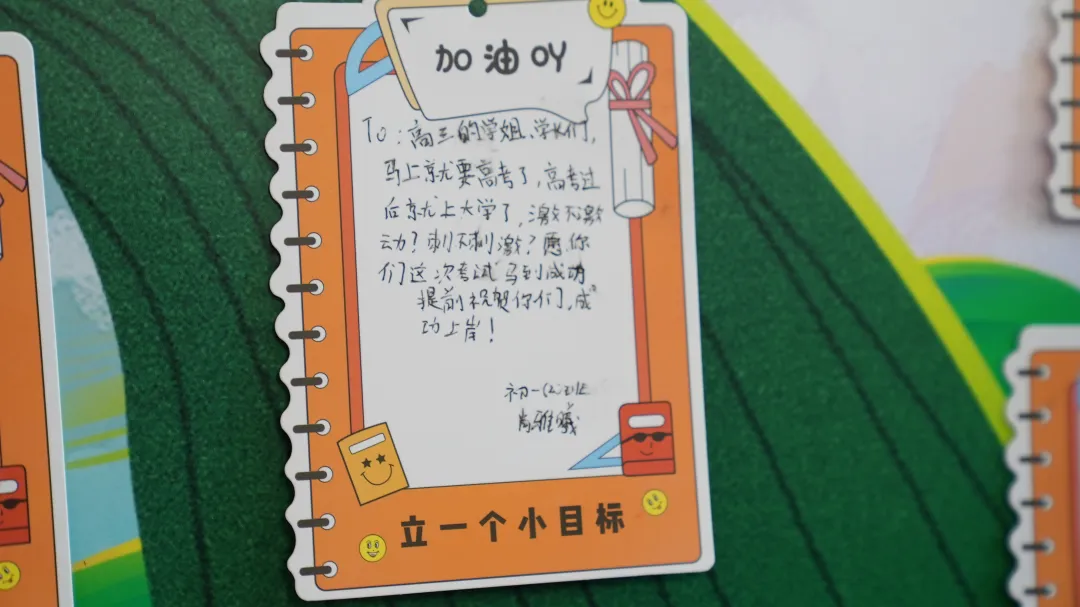 加油OY
To：高三的学姐、学长们，
马上就要高考了，高考过
后就上大学了，激不激
动？刺不刺激？愿你
们这次考试马到成功
提前祝贺你们，成
功上岸！
初一(2)班
肖雅曦
立一个小目标